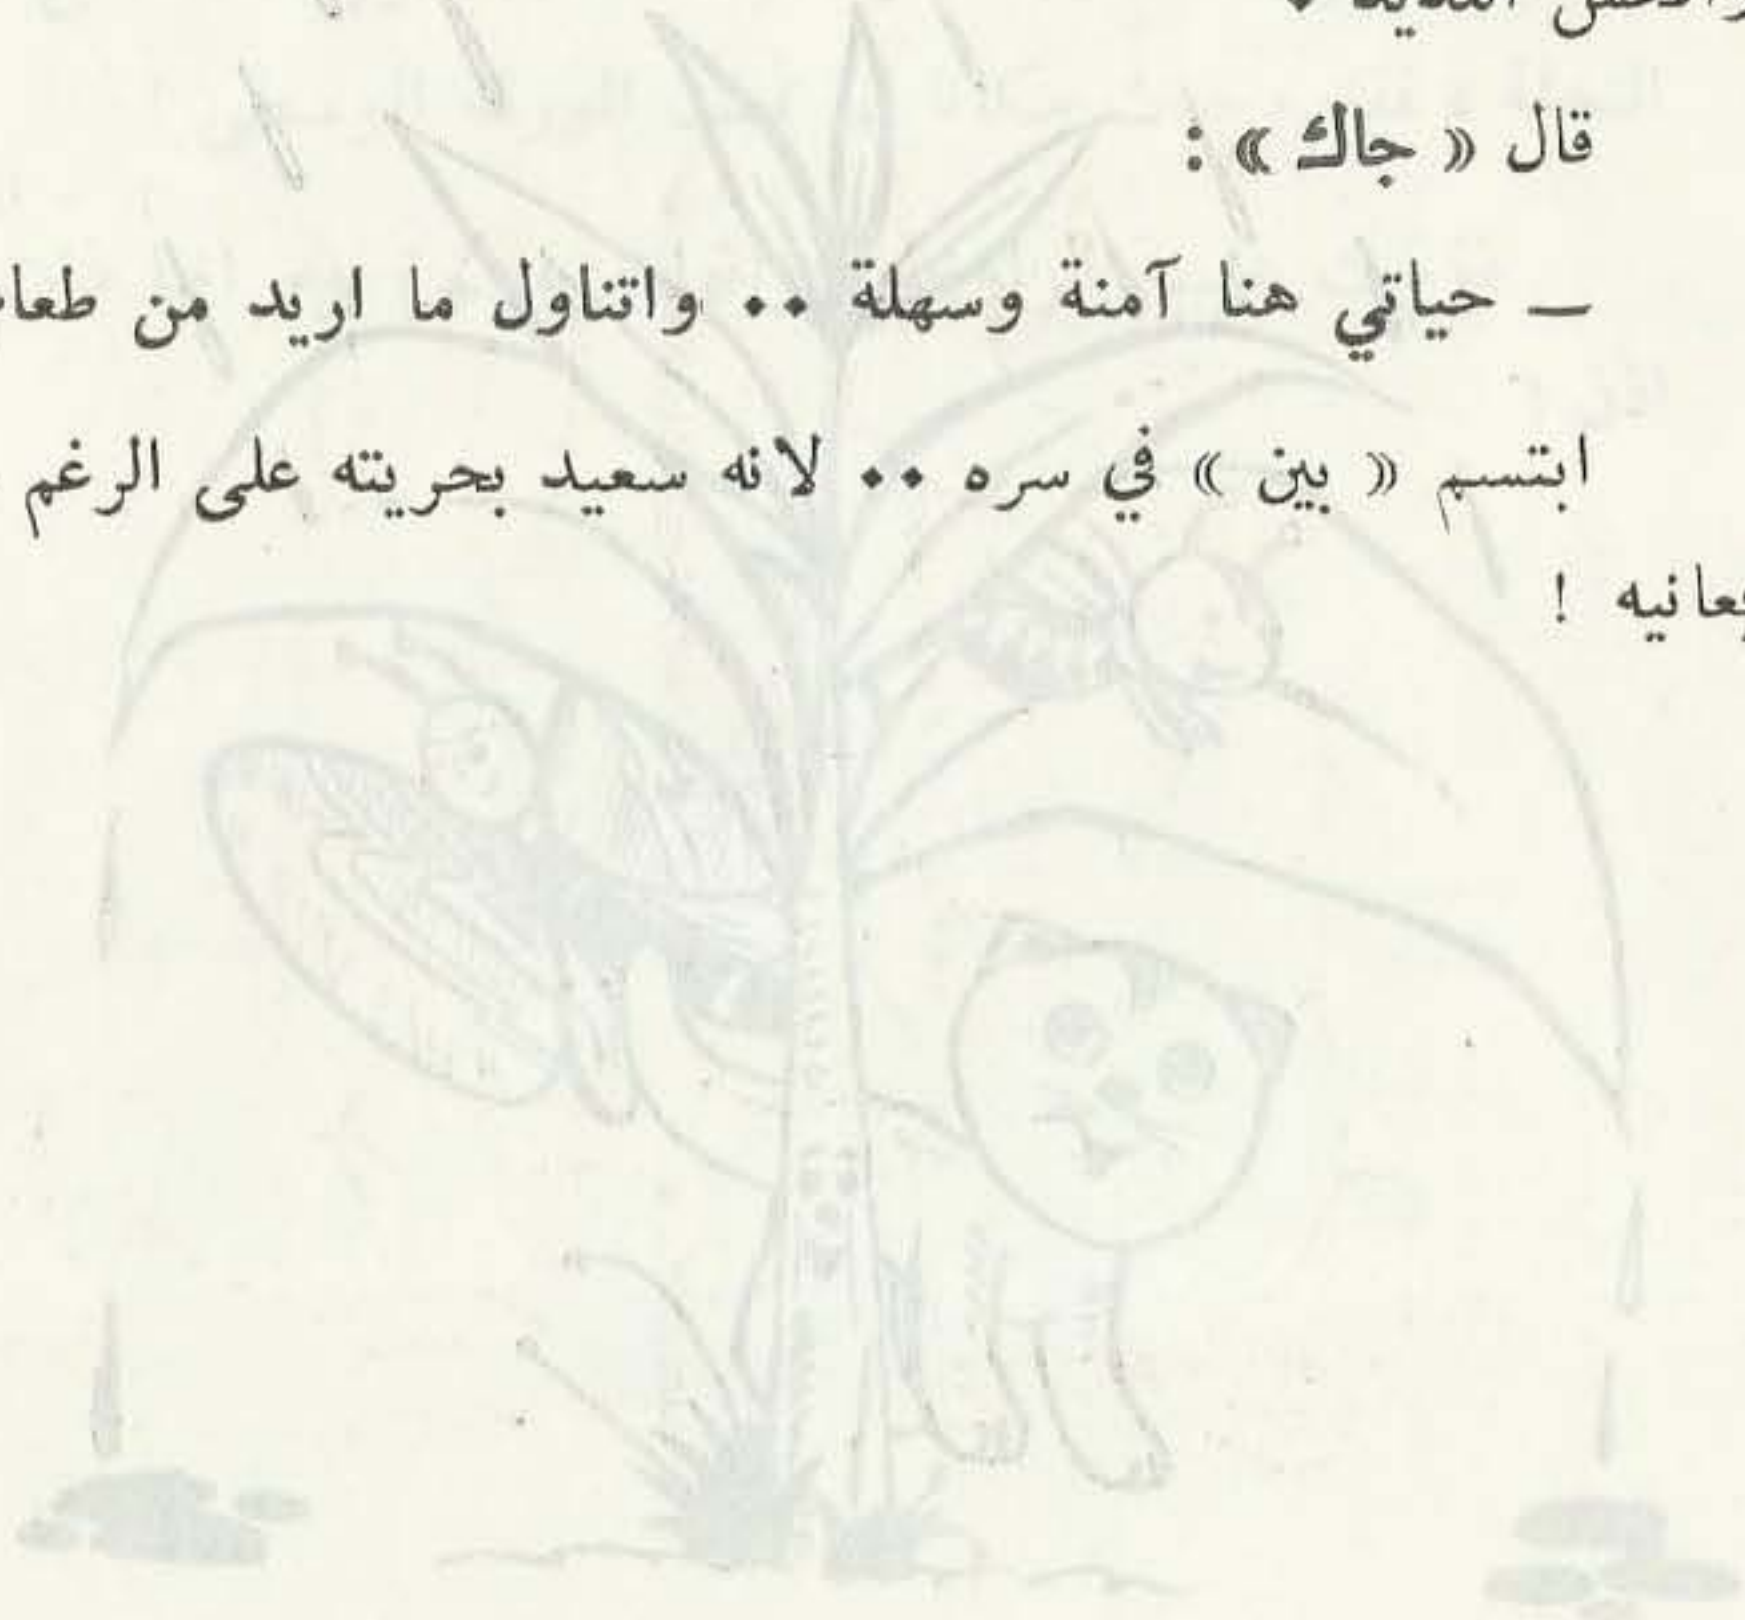 قال « جاك » :
ـ حياتي هنا آمنة وسهلة .. واتناول ما اريد من
ابتسم « بين » في سره .. لانه سعيد بحريته على الرغم
!